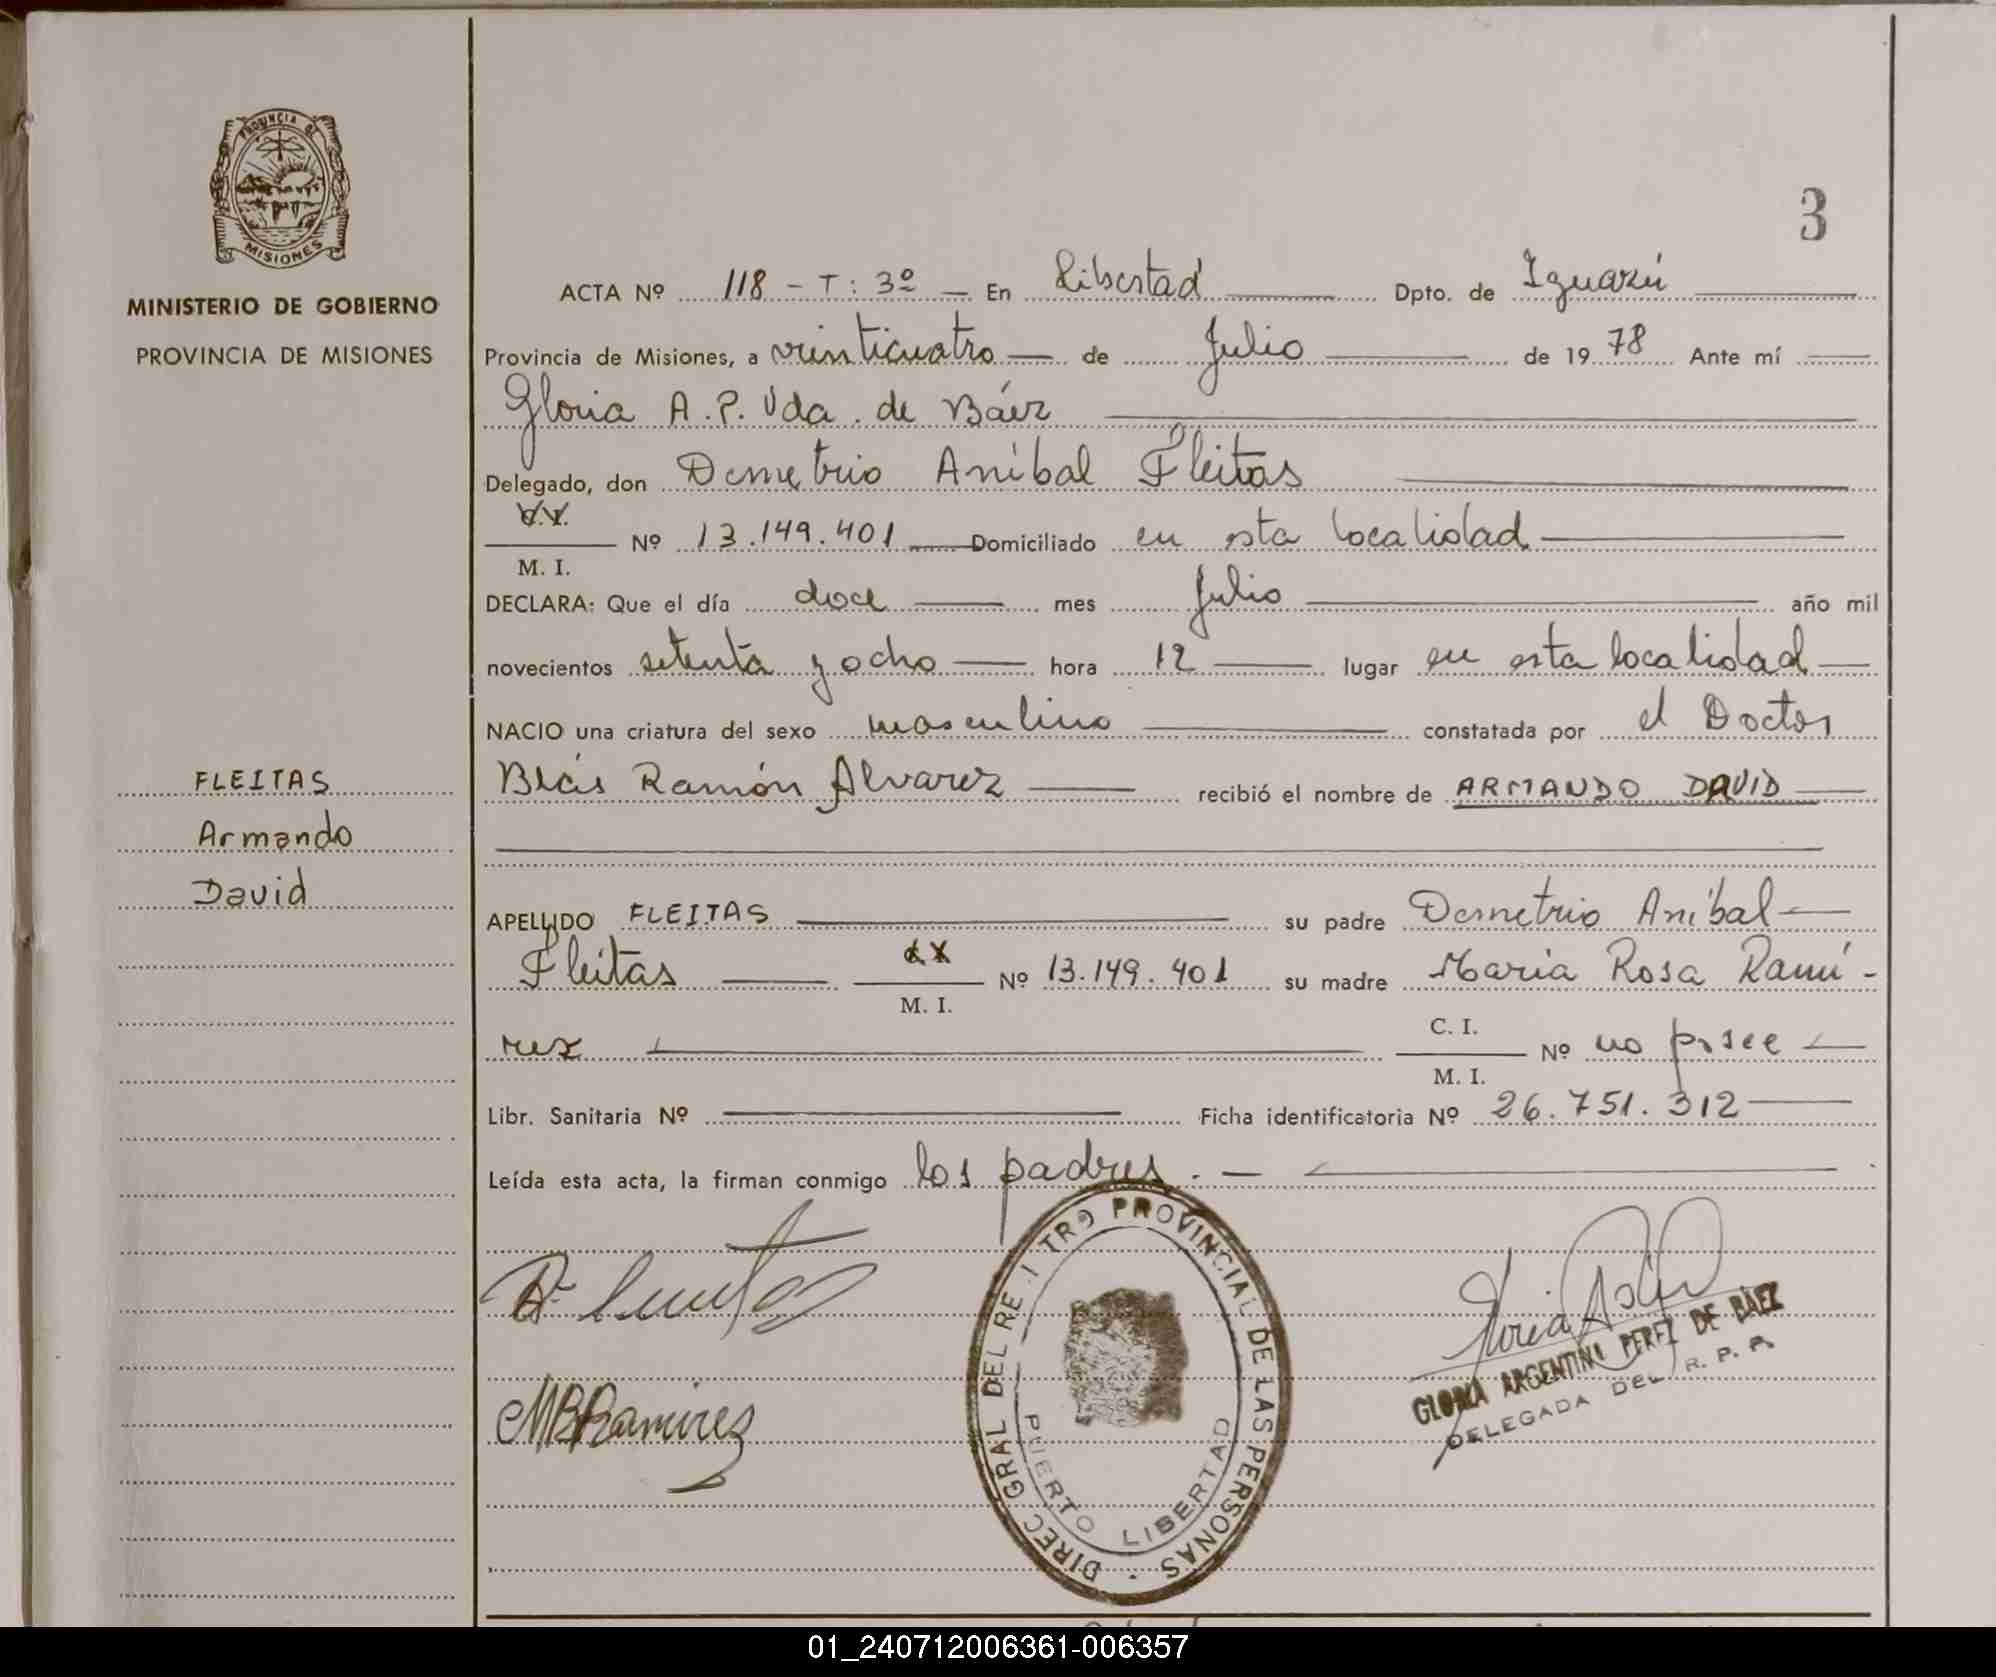 PROVINCIA DE
MISIONES
MINISTERIO DE GOBIERNO
PROVINCIA DE MISIONES
FLEITAS
Armando
David
3
ACTA Nº 118 - T: 3º - En Libertad Dpto. de Iguazú
Provincia de Misiones, a veinticuatro de Julio de 1978 Ante mí
Gloria A. P. Vda. de Báez
Delegado, don Demetrio Aníbal Fleitas
M. I. Nº 13.149.401 Domiciliado en esta localidad
DECLARA: Que el día doce mes Julio año mil
novecientos setenta y ocho hora 12 lugar en esta localidad
NACIO una criatura del sexo masculino constatada por el Doctor
Blás Ramón Alvarez recibió el nombre de ARMANDO DAVID
APELLIDO FLEITAS su padre Demetrio Aníbal
Fleitas M. I. Nº 13.149.401 su madre María Rosa Ramí-
rez C. I. M. I. Nº no posee
Libr. Sanitaria Nº Ficha identificatoria Nº 26.751.312
Leída esta acta, la firman conmigo los padres. -
MBRamirez
DIREC GRAL DEL RE I TRO PROVINCIAL DE LAS PERSONAS
PUERTO LIBERTAD
GLORIA ARGENTINA PEREZ DE BAEZ
DELEGADA DEL R. P. P.
01_240712006361-006357